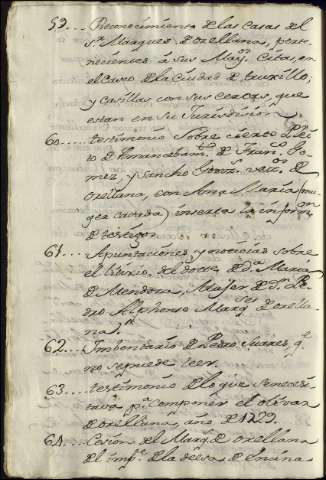 59.... Reconocimiento de las Casas del
Sr. Marques de Orellana, pert-
necientes à sus May.os Citas, en
el Casco de la Ciudad de Truxillo;
y Casillas con sus cercas, que
estan en su Jurisdicion.
60.... testimonio Sobre cierto
de de Fran.co Go-
mez, y Sancho vec.os de
Orellana, con Ana Maria
inserta la inform.
de testigos.
61.... Apuntaciones, y noticias sobre
el litixio, del Dote, de D.a Maria
de Mendoza, Muger de D.n Pe-
dro Alphonso Marq.s de Orella-
na.
62.... Imbentario de Pedro Suarez, q.e
no se puede leer.
63.... testimonio de lo que se neces-
itava p.a componer el olivar
de Orellana, año de
64.... Cesion del Marq.s de Orellana
del de la deesa de Encina